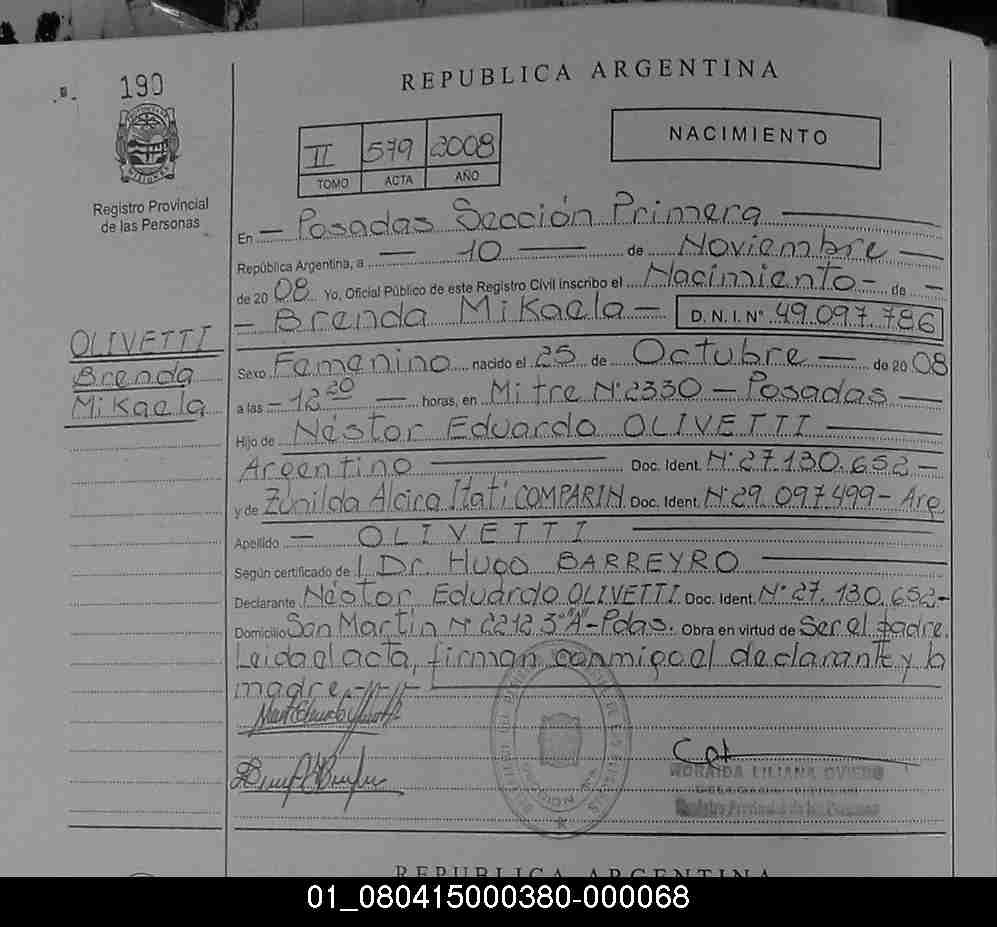 190
REPUBLICA ARGENTINA
II 579 2008
TOMO ACTA AÑO
NACIMIENTO
Registro Provincial
de las Personas
En — Posadas Sección Primera —
República Argentina, a — 10 — de Noviembre —
de 2008 Yo, Oficial Público de este Registro Civil inscribo el Nacimiento - de -
- Brenda Mikaela - D.N.I.Nº 49.097.786
OLIVETTI
Brenda
Mikaela
Sexo Femenino nacido el 25 de Octubre — de 2008
a las - 12 20 — horas, en Mitre Nº 2330 - Posadas —
Hijo de Néstor Eduardo OLIVETTI —
Argentino — Doc. Ident. Nº 27.130.652 -
y de Zunilda Alcira Itatí COMPARIN Doc. Ident. Nº 29.097.499 - Arg
Apellido — OLIVETTI —
Según certificado de Dr. Hugo BARREYRO —
Declarante Néstor Eduardo OLIVETTI Doc. Ident. Nº 27.130.652 -
Domicilio San Martín Nº 2212 3º "A" - Pdas. Obra en virtud de Ser el padre.
Leida el acta, firman conmigo el declarante y la
madre. -
LILIANA OVIEDO
Registro Provincial de las Personas
REPUBLICA ARGENTINA
01_080415000380-000068